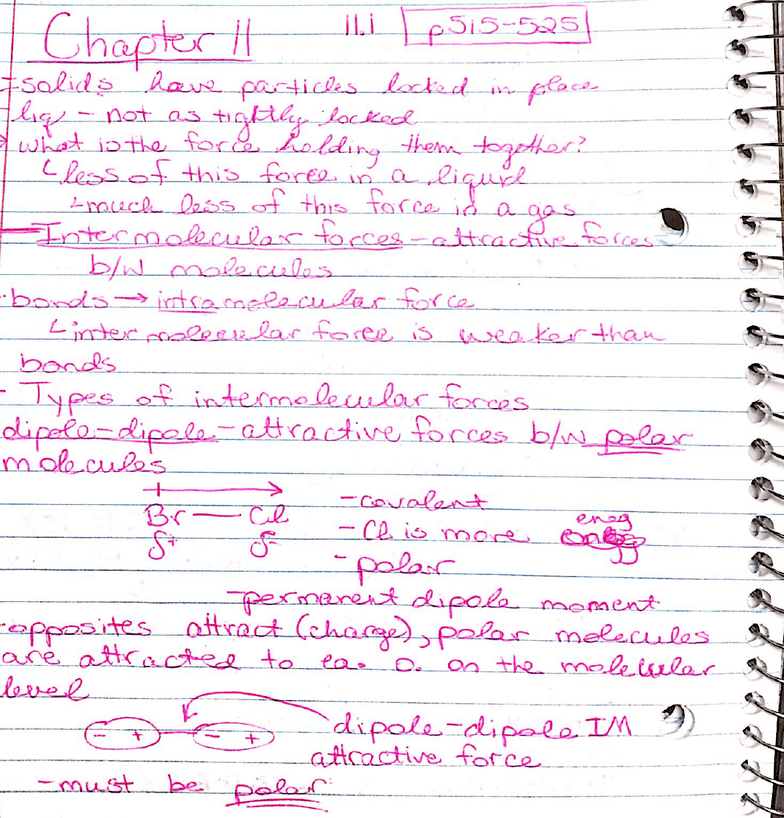 Chapter 11 11.1 p515-525
- solids have particles locked in place
- liq - not as tightly locked
> what is the force holding them together?
└ less of this force in a liquid
└ much less of this force in a gas
- Intermolecular forces - attractive forces
b/w molecules
- bonds → intramolecular force
└ intermolecular force is weaker than
bonds
- Types of intermolecular forces
dipole-dipole - attractive forces b/w polar
molecules
Br — Cl - covalent
δ+ δ- - Cl is more eneg
- polar
- permanent dipole moment
- opposites attract (charge), polar molecules
are attracted to ea. o. on the molecular
level
- + - + dipole-dipole IM
attractive force
- must be polar